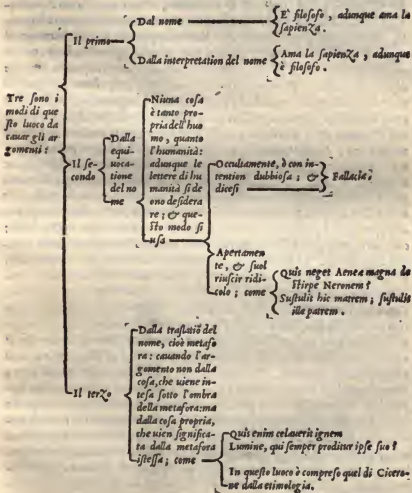 Tre ſono i
modi di que
ſto luoco da
cauar gli ar
gomenti:
Il primo
Dal nome
E' filoſofo, adunque ama la
ſapienza.
Dalla interpretation del nome
Ama la ſapienza, adunque
è filoſofo.
Il ſe-
condo
Dalla
equi-
uoca-
tione
del no
me
Niuna coſa
è tanto pro-
pria dell'huo
mo, quanto
l'humanità:
adunque le
lettere di hu
manità ſi de
ono deſidera
re; & que-
ſto modo ſi
uſa
Occultamente, ò con in-
tention dubbioſa; &
diceſi
Fallacia.
Apertamen
te, & ſuol
riuſcir ridi-
colo; come
Quis neget Aenea magna de
ſtirpe Neronem?
Suſtulit hic matrem; ſuſtulit
ille patrem.
Il terzo
Dalla traſlatiõ del
nome, cioè metafo
ra: cauando l'ar-
gomento non dalla
coſa, che uiene in-
teſa ſotto l'ombra
della metafora: ma
dalla coſa propria,
che uien ſignifica-
ta dalla metafora
iſteſſa; come
Quis enim celauerit ignem
Lumine, qui ſemper proditur ipſe ſuo?
In queſto luoco è compreſo quel di Cicero-
ne dalla etimologia.